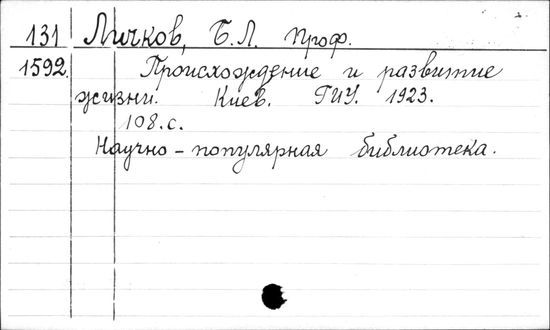 131 Личков, Б.Л. проф.
1592. Происхождение и развитие
жизни. Киев. ГИУ. 1923.
108.с.
Научно-популярная библиотека.